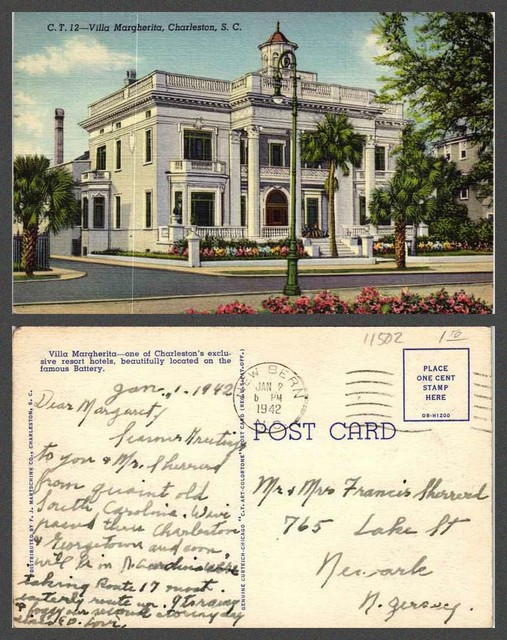 C. T. 12—Villa Margherita, Charleston, S. C.
11502 1⁰⁰
Villa Margherita—one of Charleston's exclu-
sive resort hotels, beautifully located on the
famous Battery.
NEW BERN
JAN 2
6 PM
1942
PLACE
ONE CENT
STAMP
HERE
OB-H1200
POST CARD
DISTRIBUTED BY F. J. MARTSCHINK CO., CHARLESTON, S. C.
GENUINE CURTEICH-CHICAGO "C.T. ART-COLORTONE" POST CARD (REG. U.S. PAT. OFF.)
Jan. 1, 1942
Dear Margarity
Seasons Greetings
to you & Mr. Sherrerd
from quaint old
South Carolina. We've
passed thru Charleston
& Georgetown and soon
we'll be in N.
taking Route 17 most
easterly route
& our second day
Love,
Mr & Mrs Francis Sherrerd
765 Lake St
Newark
N. Jersey.